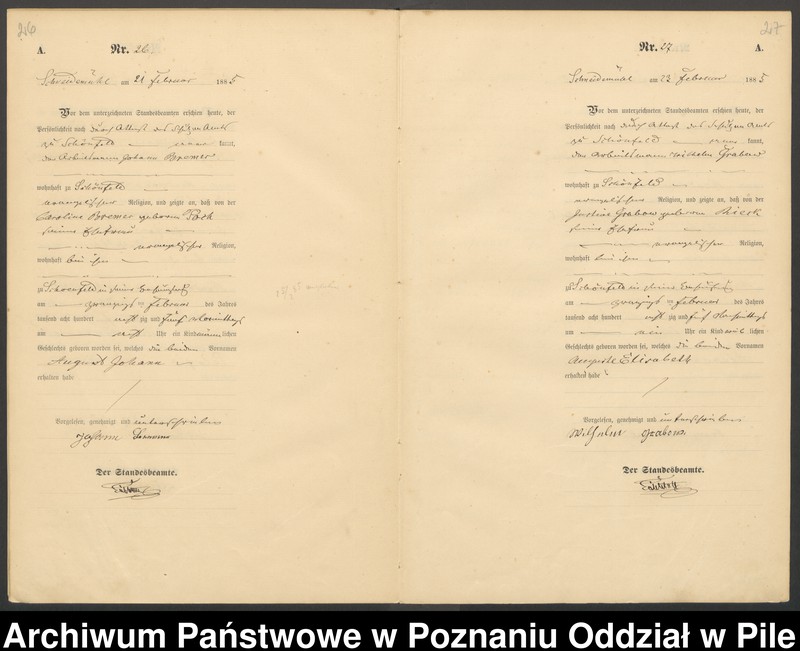 206
A.
Nr. 26
Schneidemühl am 21 Februar 1885
Vor dem unterzeichneten Standesbeamten erschien heute, der
Persönlichkeit nach durch Attest des Schulzen Amts
zu Schönfeld kannt,
den Arbeitsmann Johann Bremer
wohnhaft zu Schönfeld
evangelischer Religion, und zeigte an, daß von der
Caroline Bremer geborene
seiner Ehefrau
evangelischer Religion,
wohnhaft bei ihm
zu Schönfeld in seiner Behausung
am zwanzigsten Februar des Jahres
tausend acht hundert achtzig und fünf Vormittags
am acht Uhr ein Kind männlichen
Geschlechts geboren worden sei, welches die beiden Vornamen
August Johann
erhalten habe
Vorgelesen, genehmigt und unterschrieben
Johann
Der Standesbeamte.
207
Nr. 27
A.
Schneidemühl am 23 Februar 1885
Vor dem unterzeichneten Standesbeamten erschien heute, der
Persönlichkeit nach durch Attest des Schulzen Amts
zu Schönfeld kannt,
den Arbeitsmann Wilhelm Grabow
wohnhaft zu Schönfeld
evangelischer Religion, und zeigte an, daß von der
Justine Grabow geborene
seiner Ehefrau
evangelischen Religion,
wohnhaft bei ihm
zu Schönfeld in seiner Behausung
am zwanzigsten Februar des Jahres
tausend acht hundert achtzig und fünf
am ein Uhr ein Kind weiblichen
Geschlechts geboren worden sei, welches die beiden Vornamen
Auguste Elisabeth
erhalten habe
Vorgelesen, genehmigt und unterschrieben
Wilhelm Grabow
Der Standesbeamte.
Archiwum Państwowe w Poznaniu Oddział w Pile